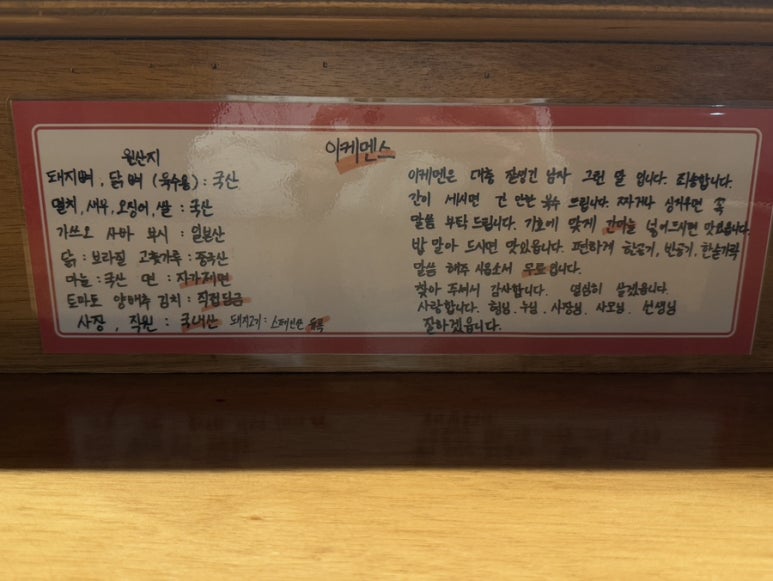 이케멘스
원산지
돼지뼈, 닭뼈 (육수용) : 국산
멸치, 새우, 오징어, 쌀 : 국산
가쓰오 사바 부시 : 일본산
닭 : 브라질 고춧가루 : 중국산
마늘 : 국산 면 : 자가제면
토마토 양배추 김치 : 직접담금
사장, 직원 : 국내산 돼지고기 : 스페인산 등록
이케멘은 대충 잘생긴 남자 그런 말 입니다. 죄송합니다.
간이 세시면 간 안한 육수 드립니다. 짜거나 싱거우면 꼭
말씀 부탁드립니다. 기호에 맞게 간마늘 넣어드시면 맛있읍니다.
밥 말아 드시면 맛있읍니다. 편하게 한공기, 반공기, 한숟가락
말씀 해주시옵소서 무료입니다.
찾아 주셔서 감사합니다. 열심히 살겠읍니다.
사랑합니다. 형님. 누님. 사장님. 사모님. 선생님
잘하겠읍니다.